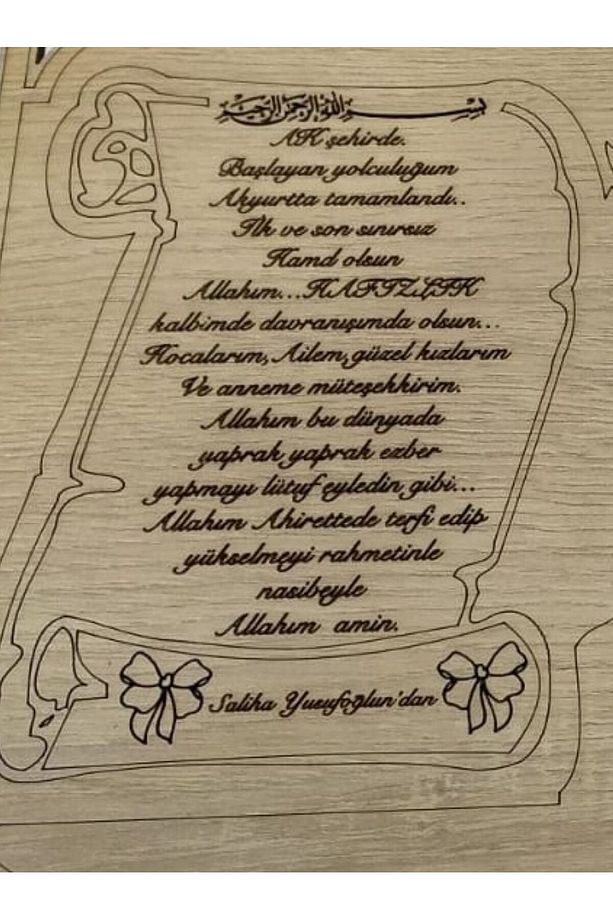 بسم الله الرحمن الرحيم
AK şehirde.
Başlayan yolculuğum
Akyurtta tamamlandı..
İlk ve son sınırsız
Hamd olsun
Allahım...HAFIZLIK
kalbimde davranışımda olsun...
Hocalarım, Ailem, güzel kızlarım
Ve anneme müteşekkirim.
Allahım bu dünyada
yaprak yaprak ezber
yapmayı lütuf eyledin gibi...
Allahım Ahirettede terfi edip
yükselmeyi rahmetinle
nasibeyle
Allahım amin.
Saliha Yusufoğlun'dan